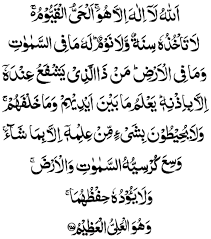 اَللّٰهُ لَاۤ اِلٰهَ اِلَّا هُوَ ۚ اَلْحَیُّ الْقَیُّوْمُ ۚ
لَا تَاْخُذُهٗ سِنَةٌ وَّلَا نَوْمٌ ؕ لَهٗ مَا فِی السَّمٰوٰتِ
وَمَا فِی الْاَرْضِ ؕ مَنْ ذَا الَّذِیْ یَشْفَعُ عِنْدَهٗۤ
اِلَّا بِاِذْنِهٖ ؕ یَعْلَمُ مَا بَیْنَ اَیْدِیْهِمْ وَمَا خَلْفَهُمْ ۚ
وَلَا یُحِیْطُوْنَ بِشَیْءٍ مِّنْ عِلْمِهٖۤ اِلَّا بِمَا شَآءَ ۚ
وَسِعَ كُرْسِیُّهُ السَّمٰوٰتِ وَالْاَرْضَ ۚ
وَلَا یَـُٔوْدُهٗ حِفْظُهُمَا ۚ
وَهُوَ الْعَلِیُّ الْعَظِیْمُ